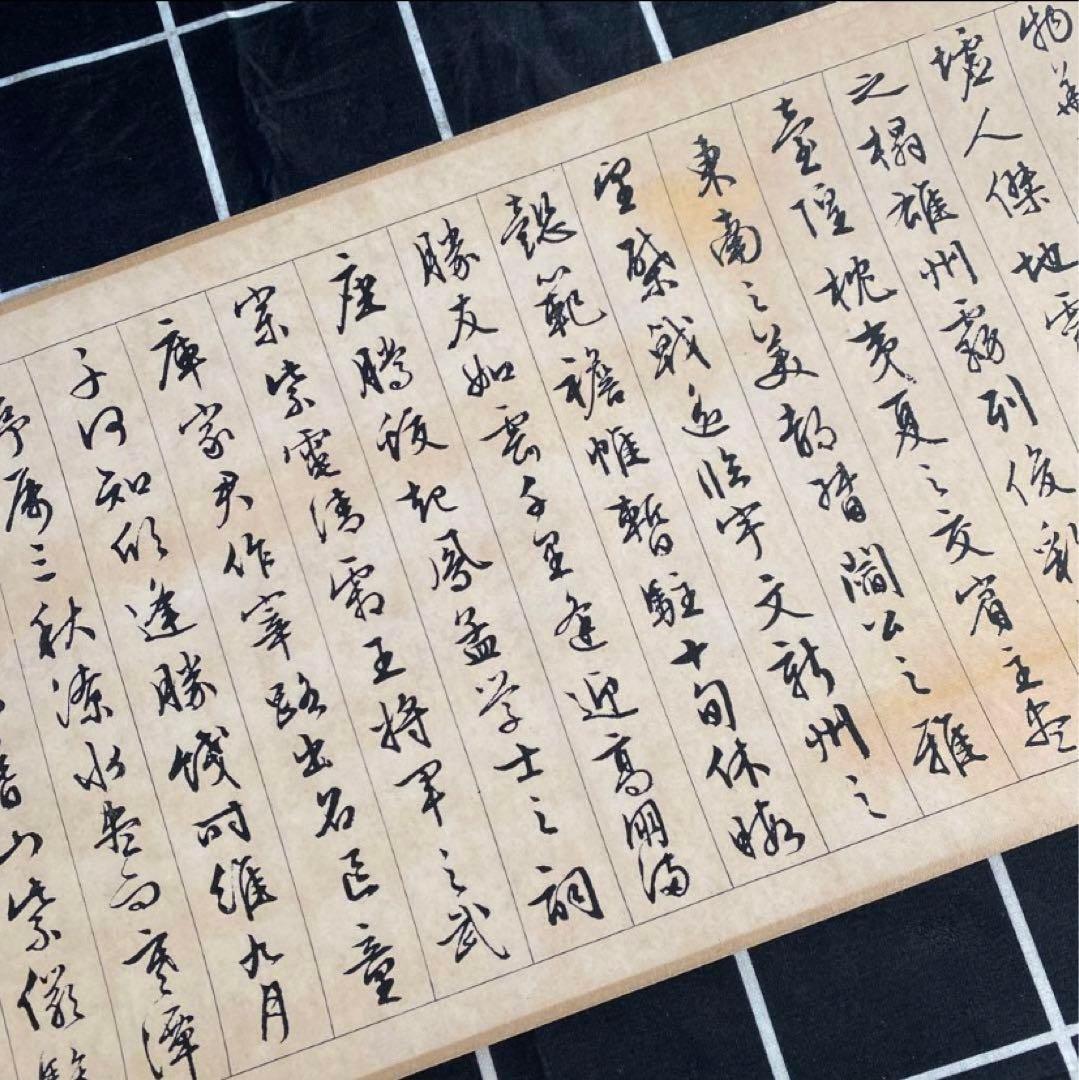 物華
墟人傑地靈
之榻雄州霧列俊彩
臺隍枕夷夏之交賓主盡
東南之美都督閻公之雅
望棨戟遙臨宇文新州之
懿範襜帷暫駐十旬休暇
勝友如雲千里逢迎高朋滿
座騰蛟起鳳孟学士之詞
宗紫電清霜王将軍之武
庫家君作宰路出名區童
子何知躬逢勝餞时維九月
序属三秋潦水盡而寒潭
暮山紫儼驂